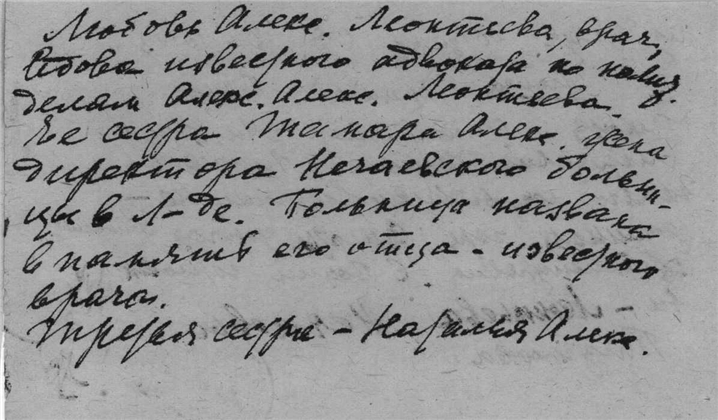 Любовь Алекс. Леонтьева, врач,
вдова известного адвоката по полит.
делам Алекс. Алекс. Леонтьева.
Ее сестра Тамара Алекс. жена
директора Нечаевского больни-
цы в Л-де. Больница названа
в память его отца - известного
врача.
Третья сестра - Наталья Алекс.